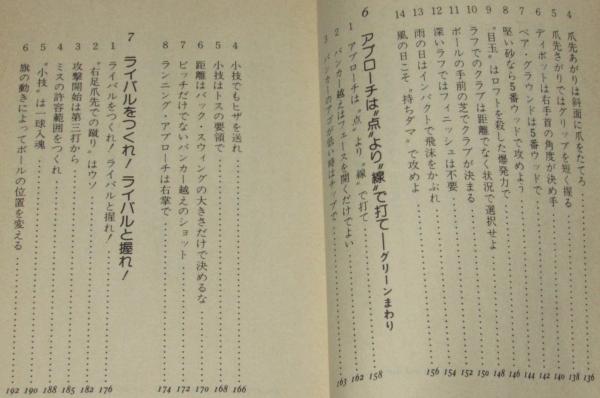 4 爪先あがりは斜面に爪をたてろ……136
5 爪先さがりではグリップを短く握る……138
6 ディボットは右手首の角度が決め手……140
7 ベア・グラウンドは5番ウッドで……142
8 堅い砂なら5番ウッドで攻めよう……144
9 〝目玉〟はロフトを殺した爆発力で……146
10 ラフでのクラブは距離でなく状況で選択せよ……148
11 ボールの手前の芝でクラブが決まる……150
12 深いラフではフィニッシュは不要……152
13 雨の日はインパクトで飛沫をかぶれ……154
14 風の日こそ〝持ちダマ〟で攻めよ……156
6 アプローチは〝点〟より〝線〟で打て——グリーンまわり
1 アプローチは〝点〟より〝線〟で打て……158
2 バンカー越えはフェースを開くだけでよい……162
3 バンカーのアゴが低い時はチップで……163
4 小技でもヒザを送れ……166
5 小技はトスの要領で……168
6 距離はバック・スウィングの大きさだけで決めるな……170
7 ピッチだけでないバンカー越えのショット……172
8 ランニング・アプローチは右掌で……174
7 ライバルをつくれ!ライバルと握れ!
1 ライバルをつくれ!ライバルと握れ!……176
2 〝右足爪先での蹴り〟はウソ……182
3 攻撃開始は第三打から……185
4 ミスの許容範囲をつくれ……188
5 〝小技〟は一球入魂……190
6 旗の動きによってボールの位置を変える……192